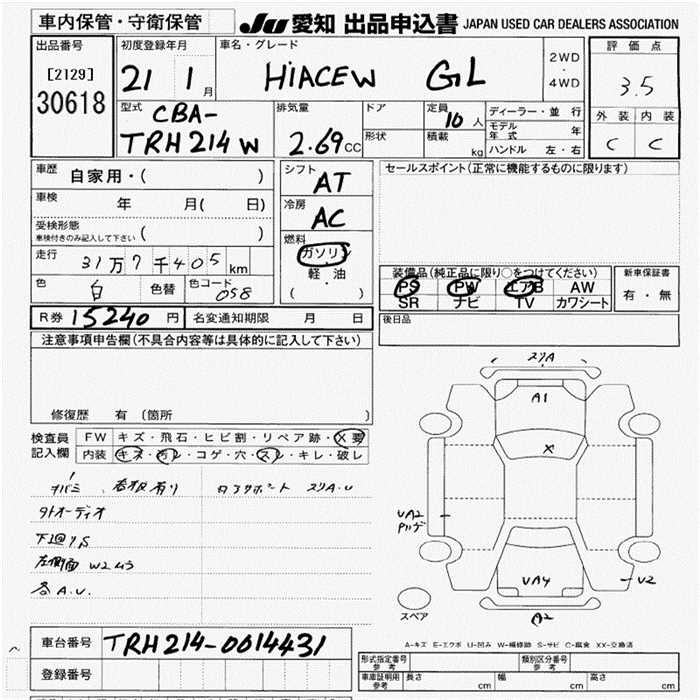 車内保管・守衛保管
JU 愛知 出品申込書 JAPAN USED CAR DEALERS ASSOCIATION
出品番号
[2129]
30618
初度登録年月
21 1月
車名・グレード
HIACEW GL
2WD
・
4WD
評価点
3.5
外装 内装
C C
型式
CBA-
TRH214W
排気量
2.69CC
ドア
形状
定員
10人
積載
kg
ディーラー・並行
モデル年式 年
ハンドル 左・右
車歴
自家用・( )
車検
年 月( 日)
受検形態
車検付きのみ記入して下さい ( )
走行
31万7千405km
色
白
色替
色コード
058
シフト
AT
冷房
AC
燃料
ガソリン
軽・油
( )
セールスポイント(正常に機能するものに限ります)
装備品(純正品に限り○をつけてください)
PS PW エアB AW
SR ナビ TV カワシート
新車保証書
有・無
R券 15240円
名変通知期限 月 日
後日品
注意事項申告欄(不具合内容等は具体的に記入して下さい)
修復歴 有 (箇所 )
検査員
記入欄
FW キズ・飛石・ヒビ割・リペア跡・X要
内装 キズ・汚レ・コゲ・穴・スレ・キレ・破レ
看板有り
外オーディオ
下廻りS
左側面 W2ムラ
各A.U.
A1
X
UA2
UA4
U2
A2
スペア
A-キズ E-エクボ U-凹み W-補修跡 S-サビ C-腐食 XX-交換済
車台番号 TRH214-0014431
登録番号
形式指定番号
参考
類別区分番号
参考
車庫証明用
参考
長さ cm 幅 cm 高さ cm